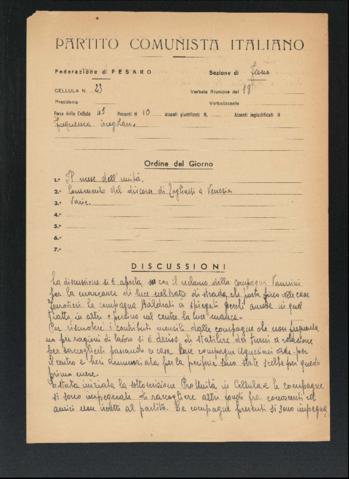 PARTITO COMUNISTA ITALIANO
Federazione di PESARO Sezione di Fano
CELLULA N. 23 Verbale Riunione del 18
Presidente Verbalizzante
Forza della Cellula Presenti N. 10 assenti giustificati N. assenti ingiustificati N.
Ordine del Giorno
1.° Il mese dell'unità.
2.° Commento del discorso di Togliatti a Venezia
3.° Varie.
4.°
5.°
6.°
7.°
DISCUSSIONI
La discussione si è aperta con il reclamo della compagna Vannini
per la mancanza di luce nel tratto di strada che porta fino alle case
la compagna Baldrati a
tratto in altri e perfino nel centro la luce manca.
Per riscuotere i contributi mensili dalle compagne che non
per ragioni di lavoro si è deciso di stabilire dei turni a rotazione
per raccoglierli passando a casa. Due compagne Uguccioni per
il centro e per la sono state scelte per questo
primo mese.
È stata iniziata la sottoscrizione Pro Unità in Cellula e le compagne
si sono impegnate di raccogliere altri fondi fra conoscenti ed
amici non iscritti al partito. Le compagne presenti si sono